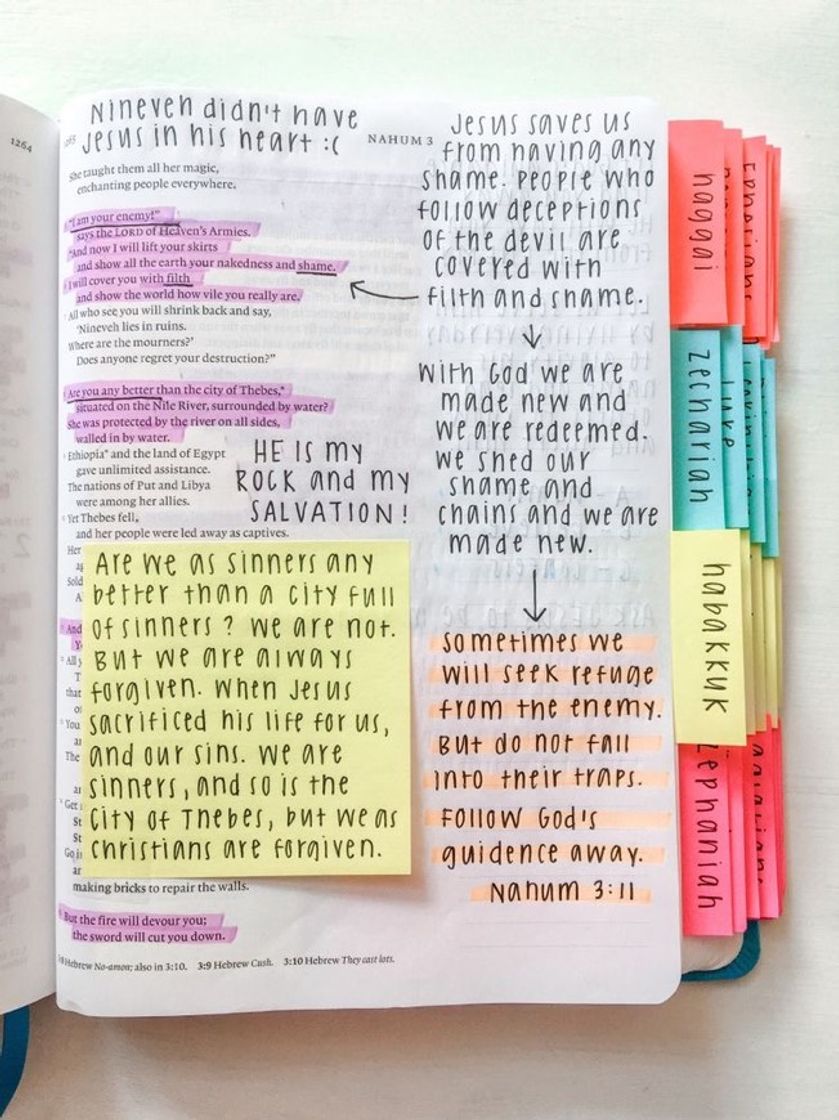 1264
Nineveh didn't have
Jesus in his heart :(
NAHUM 3
She taught them all her magic,
enchanting people everywhere.
"I am your enemy!"
says the LORD of Heaven's Armies.
"And now I will lift your skirts
and show all the earth your nakedness and shame.
I will cover you with filth
and show the world how vile you really are.
All who see you will shrink back and say,
'Nineveh lies in ruins.
Where are the mourners?'
Does anyone regret your destruction?"
Are you any better than the city of Thebes,*
situated on the Nile River, surrounded by water?
She was protected by the river on all sides,
walled in by water.
Ethiopia* and the land of Egypt
gave unlimited assistance.
The nations of Put and Libya
were among her allies.
Yet Thebes fell,
and her people were led away as captives.
HE IS my
ROCK and my
SALVATION!
Her
Sold
A
Are we as sinners any
better than a city full
of sinners? We are not.
But we are always
forgiven. When Jesus
sacrificed his life for us,
and our sins. We are
sinners, and so is the
City of Thebes, but we as
christians are forgiven.
And
All
T
that
You
The
Get
St
St
Go
making bricks to repair the walls.
But the fire will devour you;
the sword will cut you down.
Hebrew No-amon; also in 3:10. 3:9 Hebrew Cush. 3:10 Hebrew They cast lots.
Jesus saves us
from having any
shame. People who
follow deceptions
of the devil are
covered with
filth and shame.
With God we are
made new and
we are redeemed.
We shed our
shame and
chains and we are
made new.
Sometimes we
will seek refuge
from the enemy.
But do not fall
into their traps.
Follow God's
guidence away.
Nahum 3:11
haggai
Ephesians
zechariah
luke
habakkuk
zephaniah